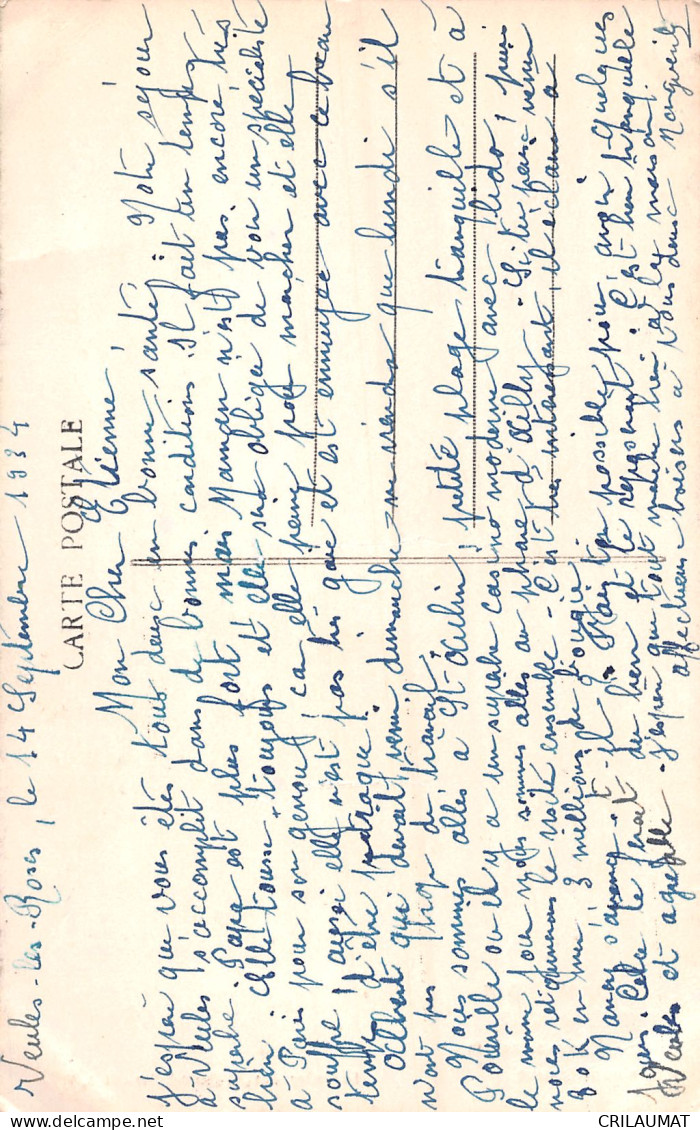 Veules-les-Roses, le 14 Septembre 1934
CARTE POSTALE
Mon Cher Etienne,
J'espère que vous êtes tous deux en bonne santé, Notre séjour
à Veules s'accomplit dans de bonnes conditions il fait un temps
superbe. Papa est plus fort mais Maman n'est pas encore très
bien elle tousse toujours et elle sera obligée de voir un spécialiste
à Paris pour son genou, car elle peine pour marcher et elle
souffre, aussi elle n'est pas très gaie et est ennuyée avec ce beau
temps d'être patraque.
Albert qui devait venir dimanche ne viendra que lundi s'il
n'ont pas trop de travail.
Nous sommes allés à St-Aubin, petite plage tranquille et à
Pourville où il y a un superbe casino moderne avec lido, puis
le même jour nous sommes allés au phare d'Ailly. Si tu peux venir
nous retournerons le visiter ensemble. C'est très intéressant, il éclaire à
80 K en mer 3 millions de bougie.
Nanay s'avance-t-il ? Fais ton possible pour avoir quelques
jours. Cela te ferait du bien et te reposerait. C'est bien tranquille
Veules et agréable. J'espère que tout marche bien à la maison.
affectueux baisers à vous deux